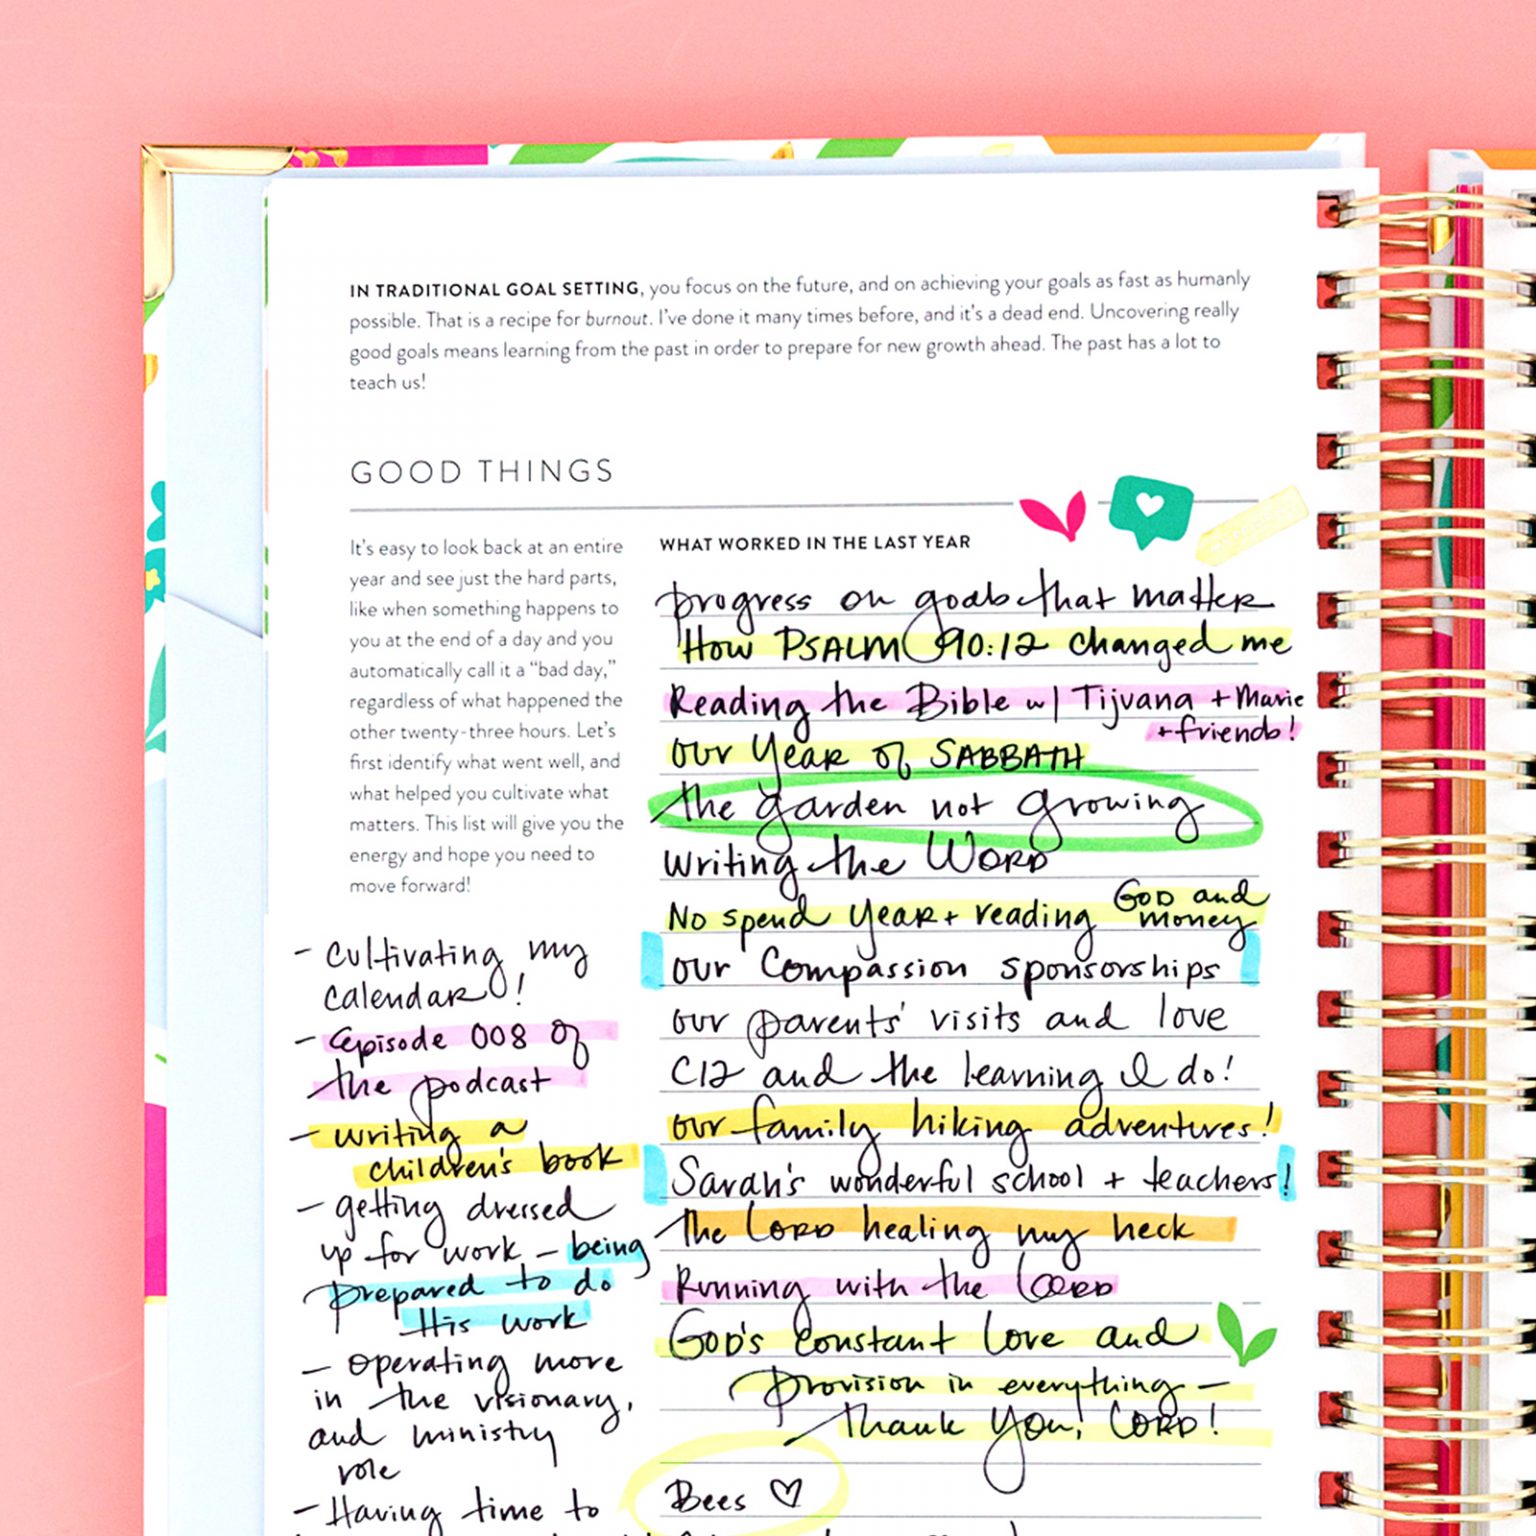 IN TRADITIONAL GOAL SETTING, you focus on the future, and on achieving your goals as fast as humanly
possible. That is a recipe for burnout. I've done it many times before, and it's a dead end. Uncovering really
good goals means learning from the past in order to prepare for new growth ahead. The past has a lot to
teach us!
GOOD THINGS
It's easy to look back at an entire
year and see just the hard parts,
like when something happens to
you at the end of a day and you
automatically call it a "bad day,"
regardless of what happened the
other twenty-three hours. Let's
first identify what went well, and
what helped you cultivate what
matters. This list will give you the
energy and hope you need to
move forward!
- cultivating my
calendar!
- Episode 008 of
the podcast
- writing a
children's book
- getting dressed
up for work - being
prepared to do
His work
- operating more
in the visionary,
and ministry
role
- Having time to
WHAT WORKED IN THE LAST YEAR
progress on goals that matter
How PSALM 90:12 changed me
Reading the Bible w/ Tijuana + Marie
+ friends!
our Year of SABBATH
the garden not growing
writing the WORD
No spend year + reading GOD and
money
our Compassion sponsorships
our parents' visits and love
C12 and the learning I do!
our family hiking adventures!
Sarah's wonderful school + teachers!
the LORD healing my neck
Running with the LORD
GOD'S constant love and
Provision in everything -
thank You, LORD!
Bees